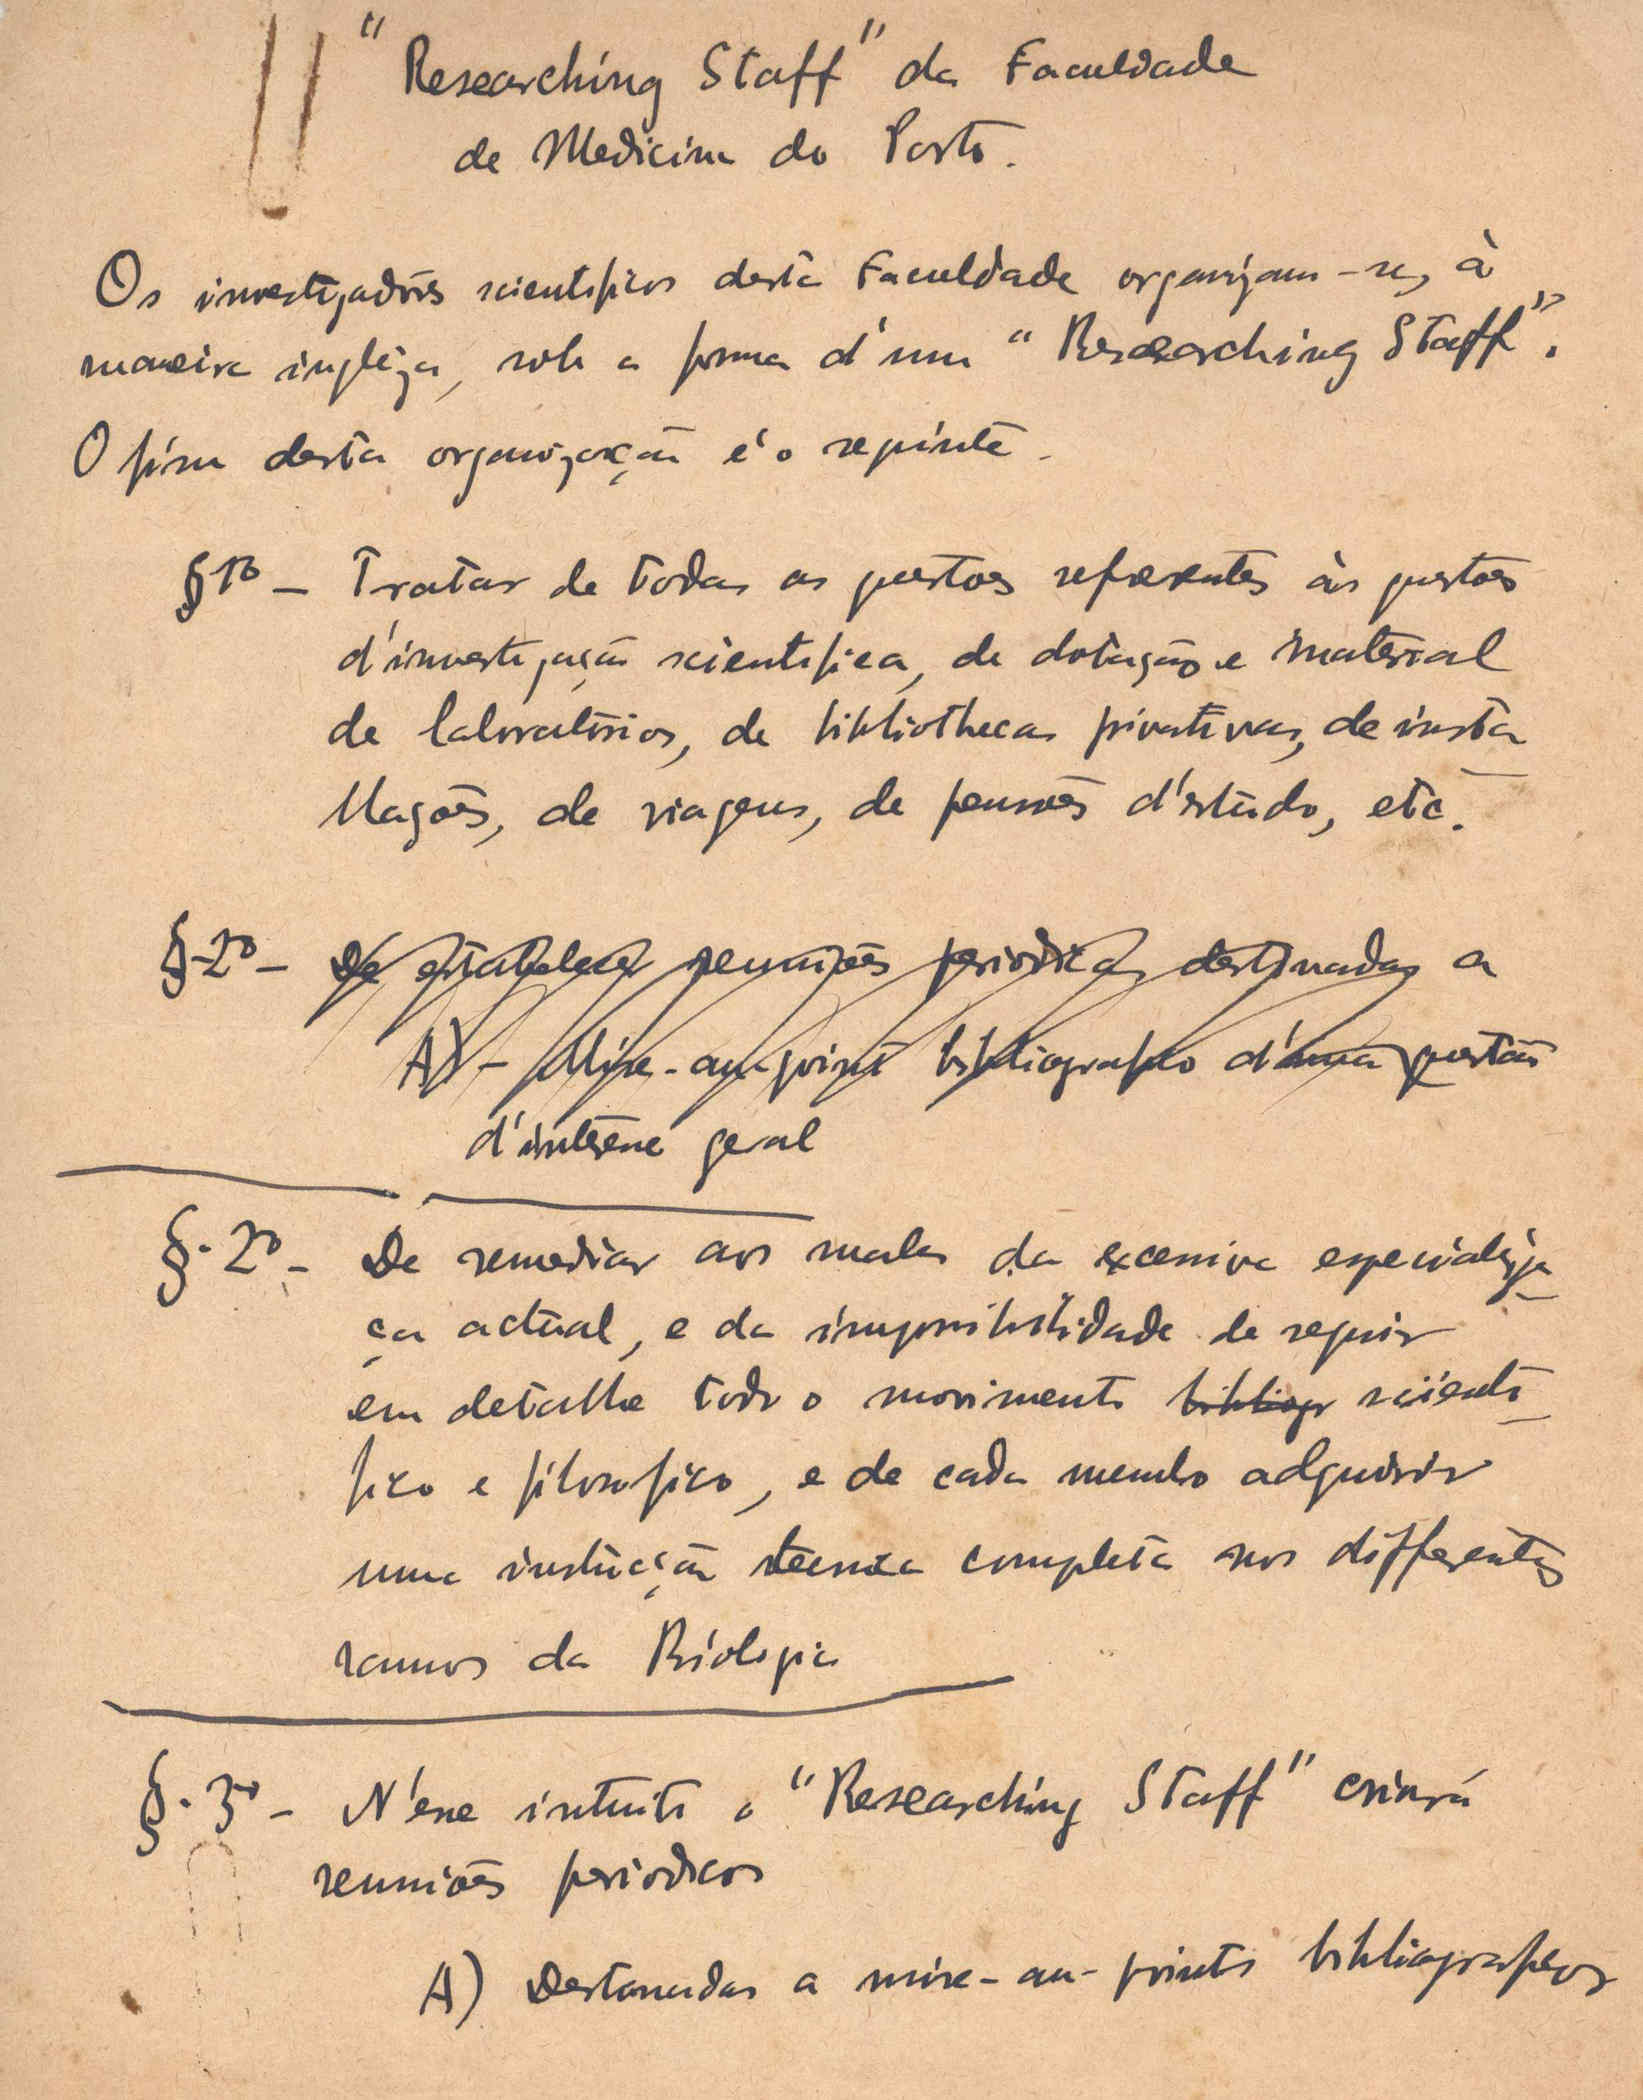 "Researching Staff" da Faculdade
de Medicina do Porto.
Os investigadores scientificos desta Faculdade organizam-se, à
maneira ingleza, sob a forma d'um "Researching Staff".
O fim desta organização é o seguinte.
§1º - Tratar de todas as questoes referentes às questões
d'investigação scientifica, de dotação e material
de laboratórios, de bibliothecas privativas, de insta
llações, de viagens, de pensões d'estudo, etc.
§-2º- De estabelecer reuniões periodicas destinadas a
A) - Mise-au-point bibliographico d'uma questão
d'interesse geral
§. 2º - De remediar aos males da excessiva especializa
ça actual, e da impossibilidade de seguir
em detalhe todo o movimento bibliogr scienti
fico e filosofico, e de cada membro adquirir
uma instrucção tecnica completa nos differentes
ramos da Biologia
§. 3º - N'esse intuito o "Researching Staff" criará
reuniões periodicas
A) Destinadas a mise-au-points bibliograficos